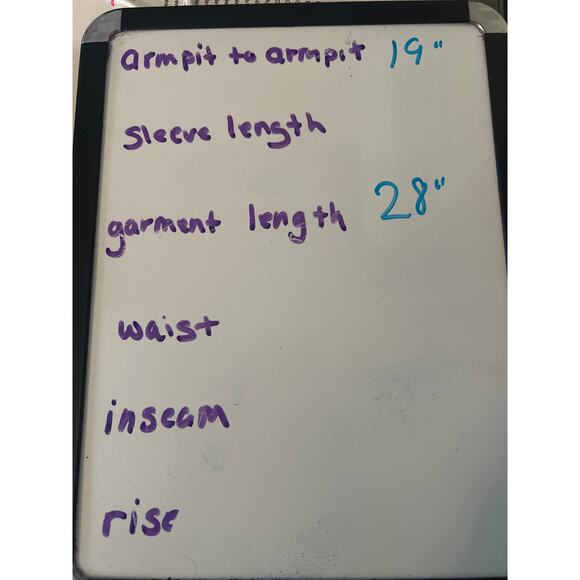 armpit to armpit 19"
sleeve length
garment length 28"
waist
inseam
rise